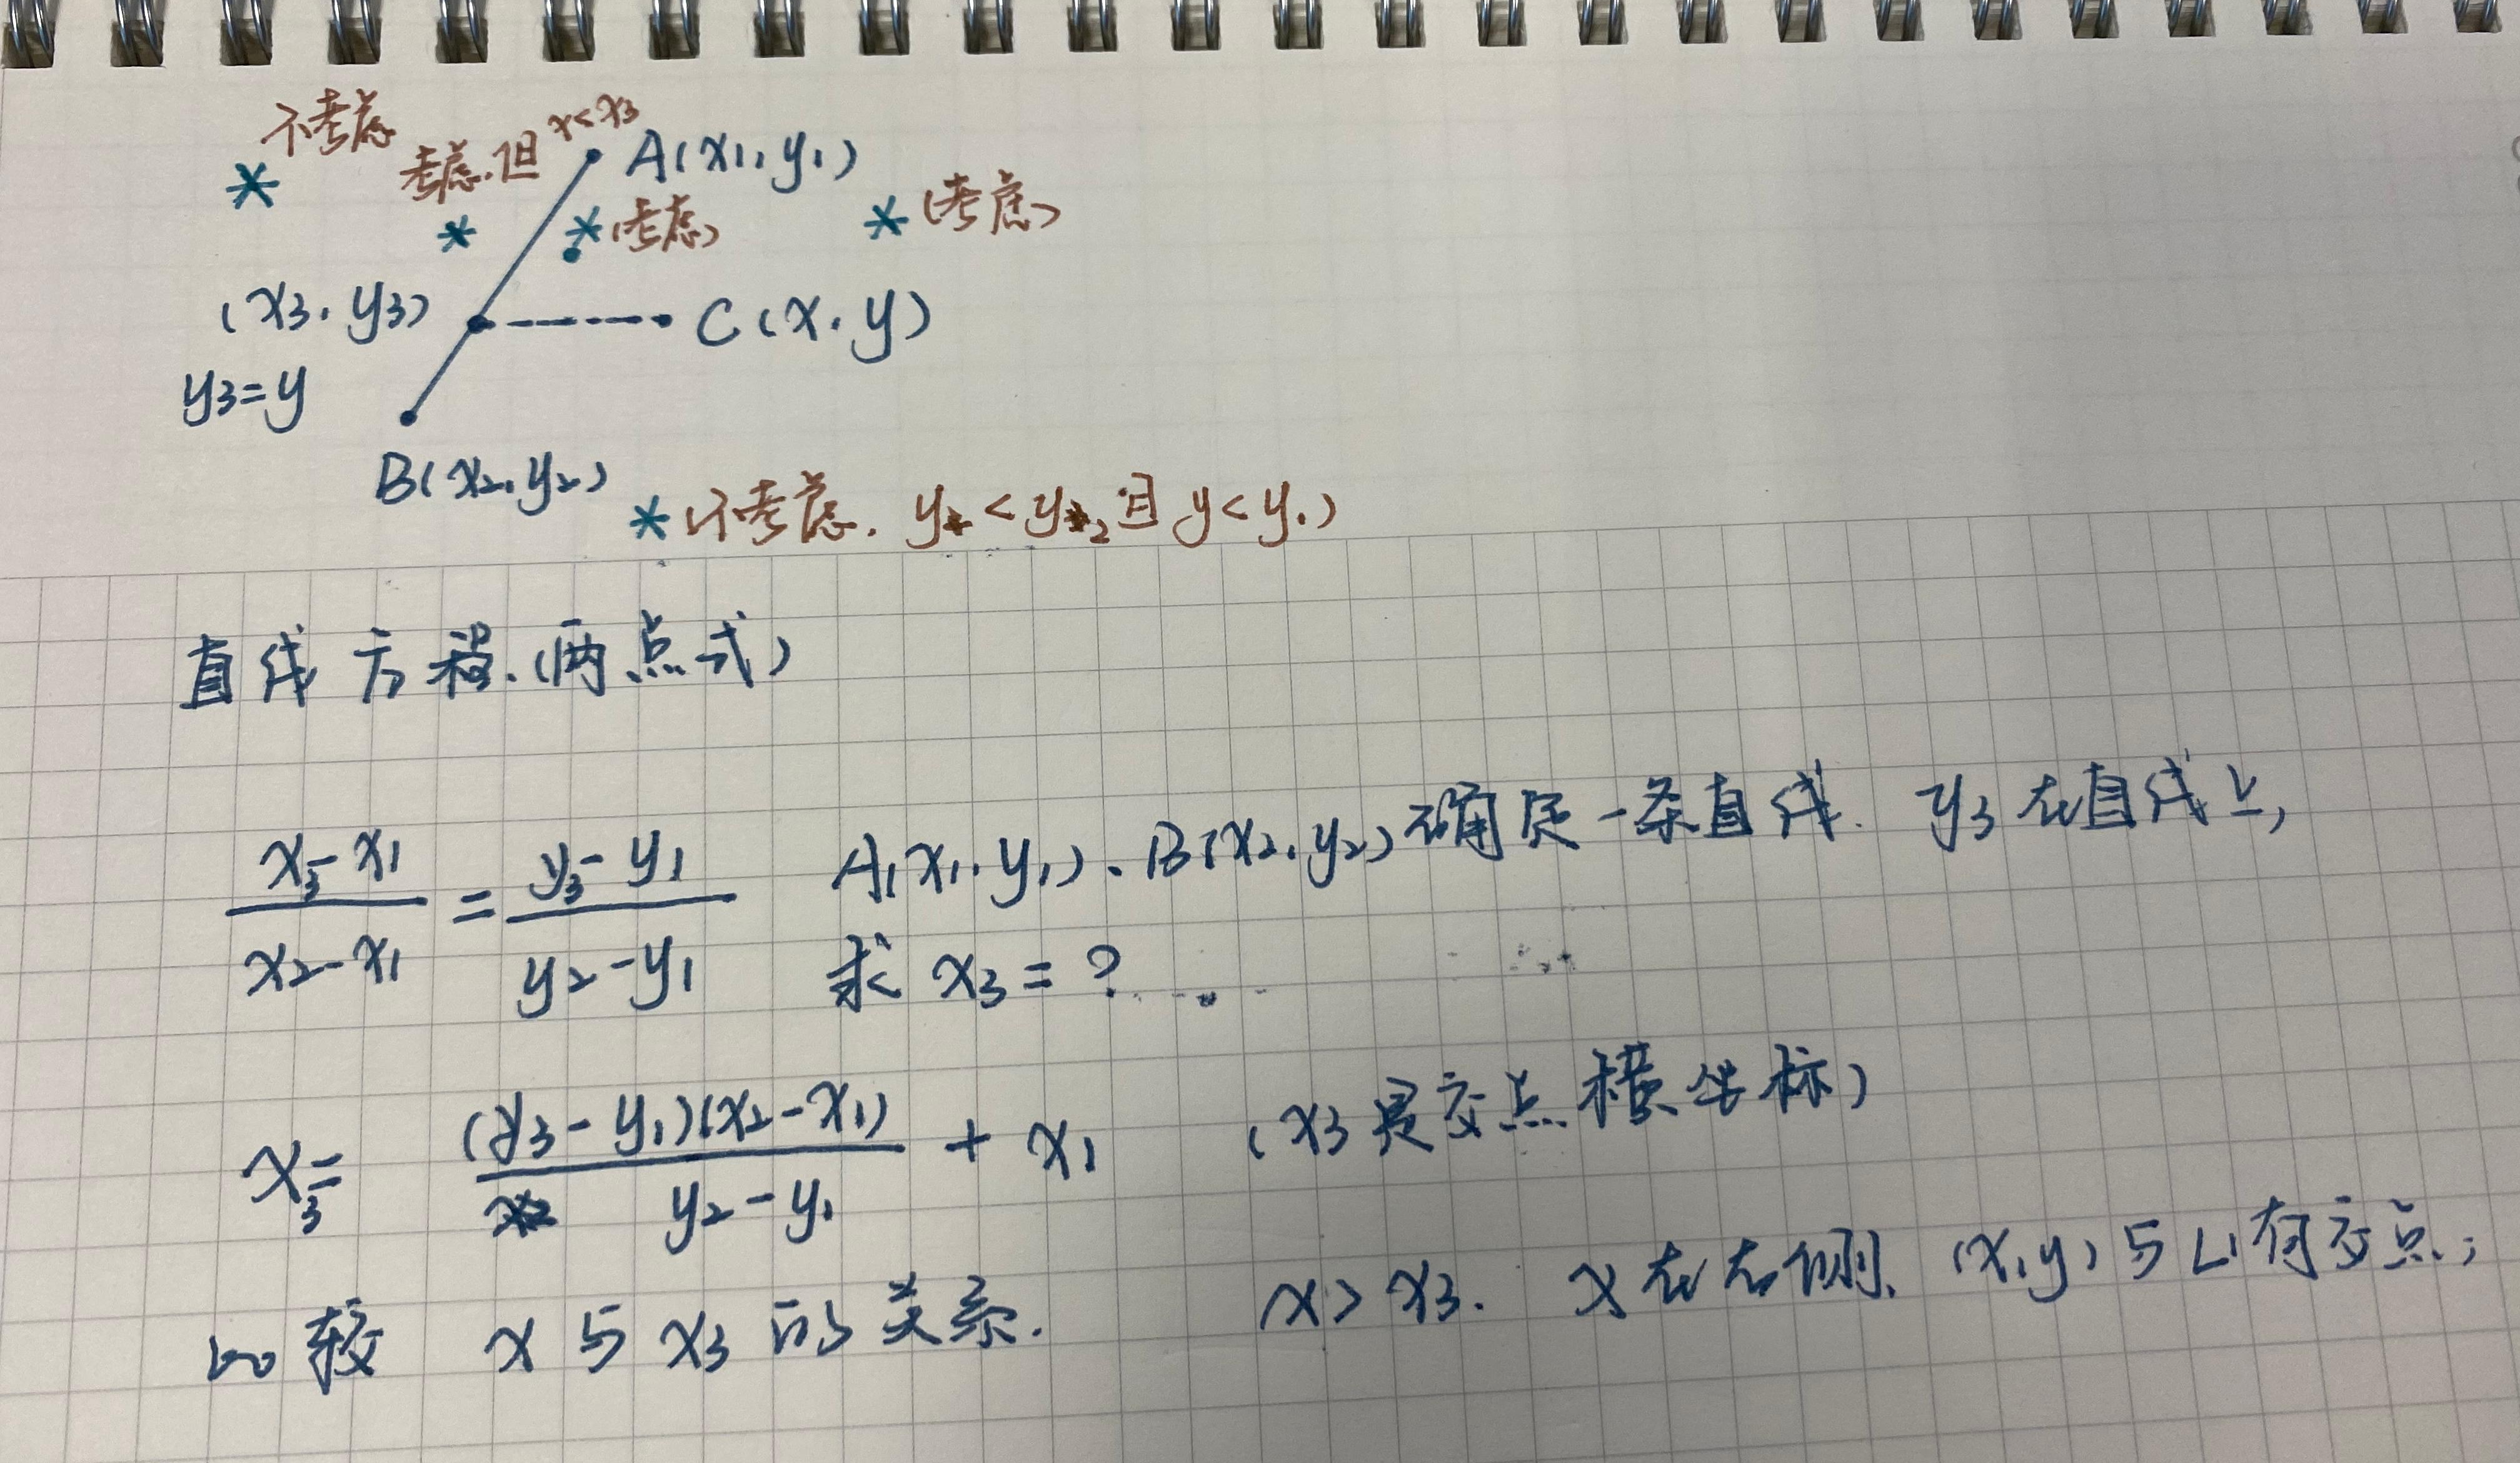 不考虑
考虑.但 x<x3
A(x1,y1)
* * *(考虑) *(考虑)
(x3,y3) C(x,y)
y3=y
B(x2,y2)
*(不考虑. y<y2且y<y1)
直线方程.(两点式)
(x3-x1)/(x2-x1) = (y3-y1)/(y2-y1) A(x1,y1)、B(x2,y2)确定一条直线. y3在直线上,
求 x3=?
x3= (y3-y1)(x2-x1)/(y2-y1) + x1 (x3是交点横坐标)
比较 x与x3的关系. x>x3. x在右侧. (x,y)与L1有交点;